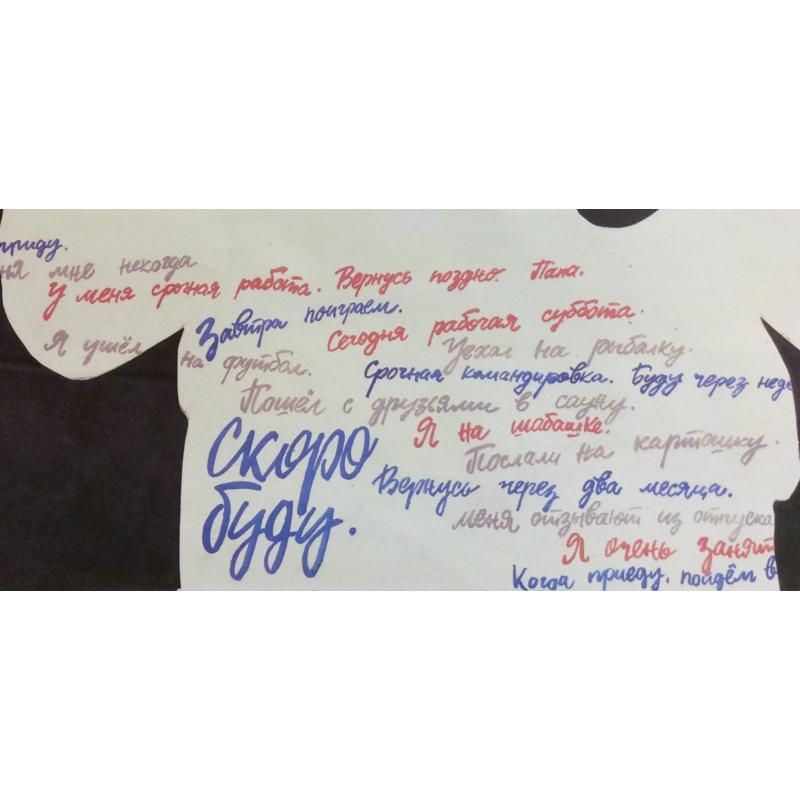 приду.
мне некогда
У меня срочная работа. Вернусь поздно. Папа.
Завтра поиграем.
Сегодня рабочая суббота.
Я ушёл на футбол.
Уехал на рыбалку.
Срочная командировка. Буду через неде
Пошёл с друзьями в сауну.
Скоро буду.
Я на шабашке.
Послали на картошку.
Вернусь через два месяца.
меня отзывают из отпуска
Я очень занят
Когда приеду, пойдём в